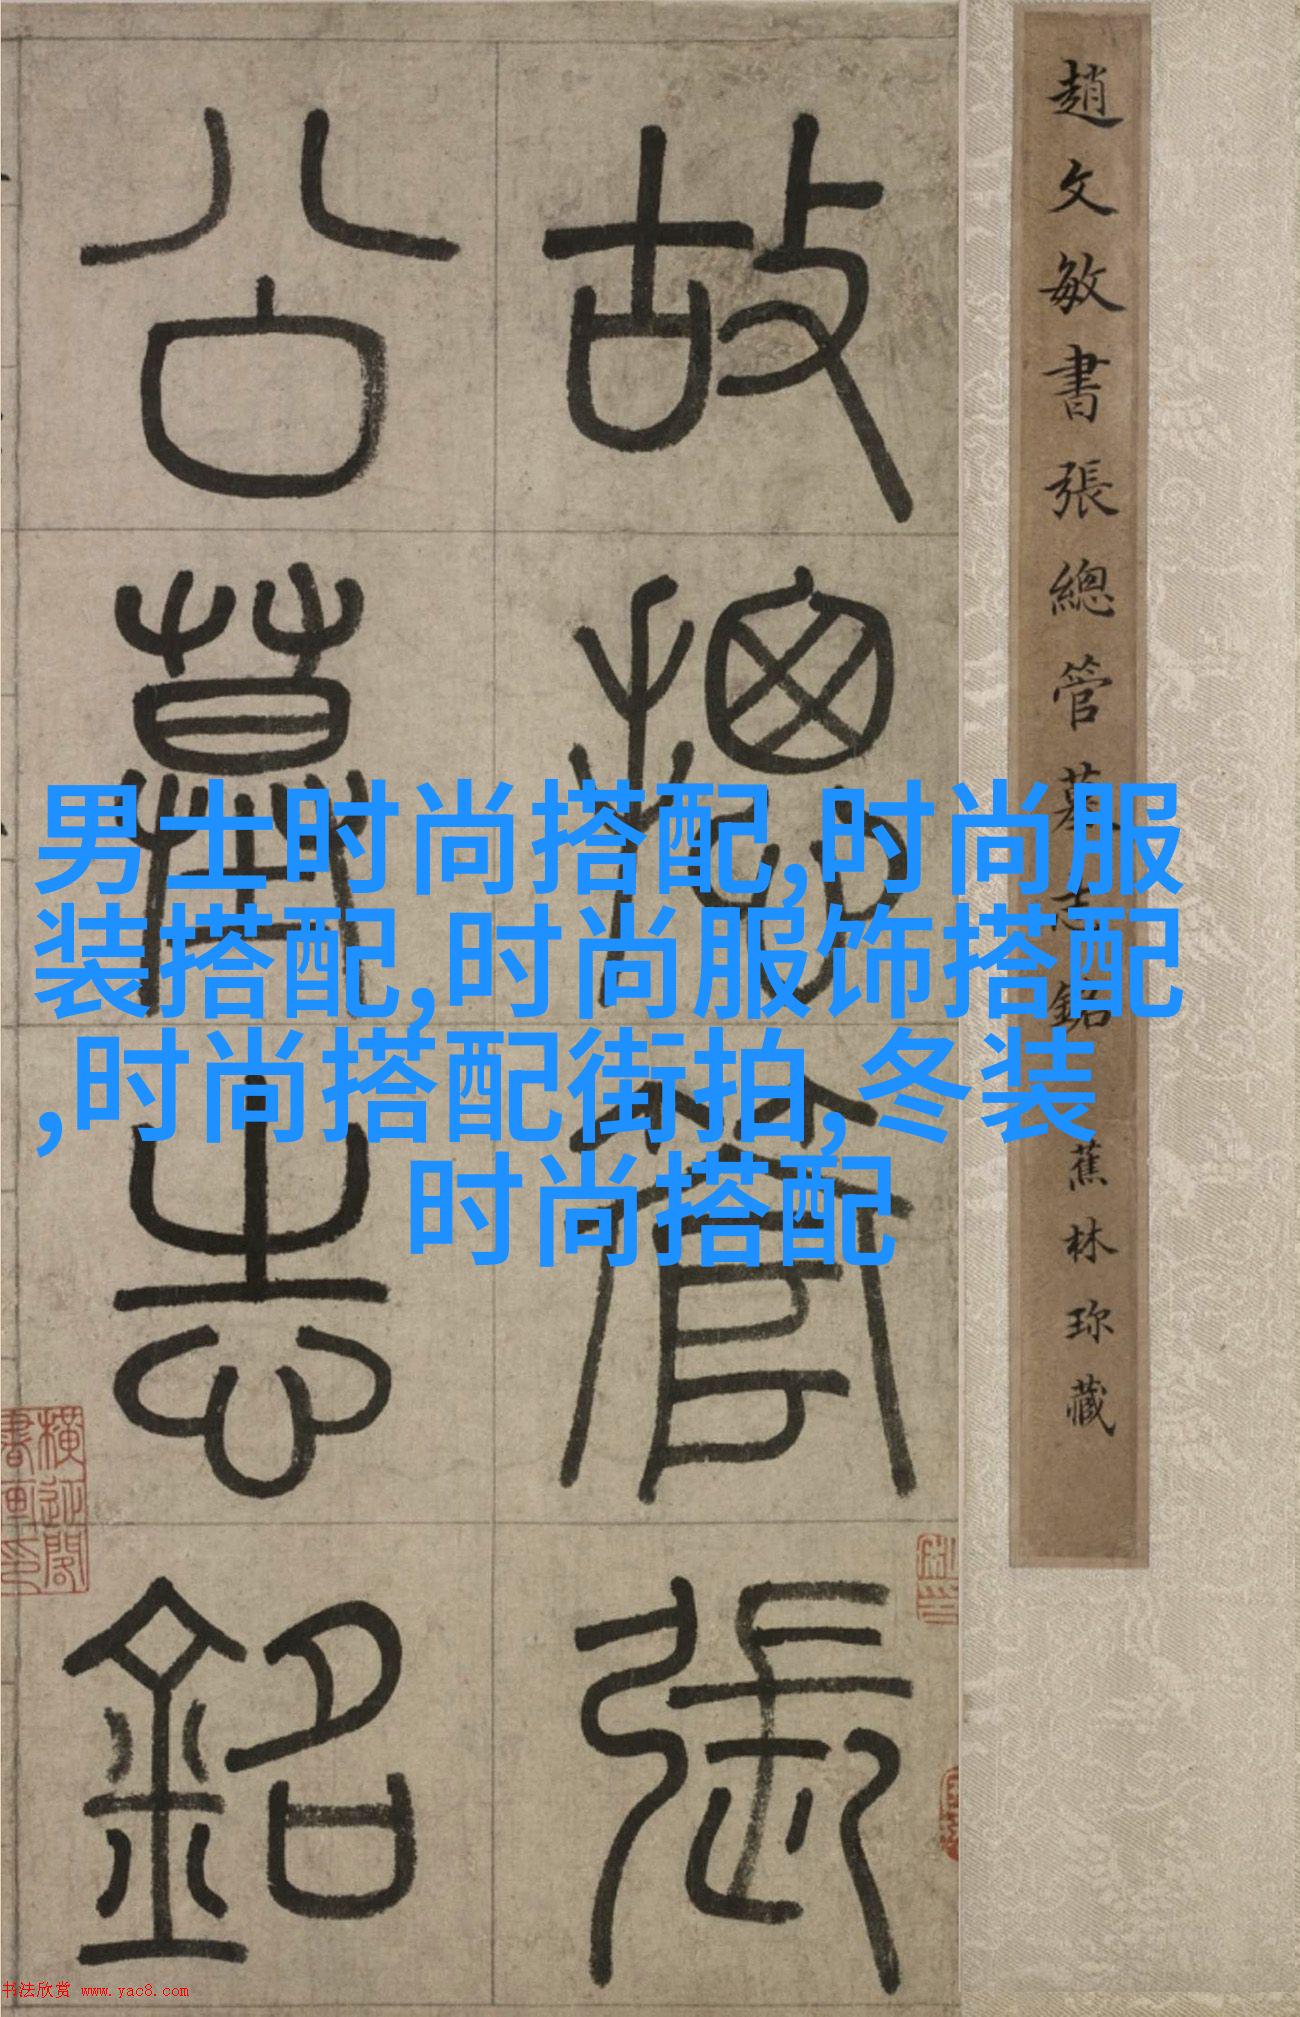 趙文敏書張總管墓志銘 蕉林珎藏
故總管張
公墓志銘
男士时尚搭配,时尚服
装搭配,时尚服饰搭配
,时尚搭配街拍,冬装
时尚搭配
书法欣赏 www.yac8.com